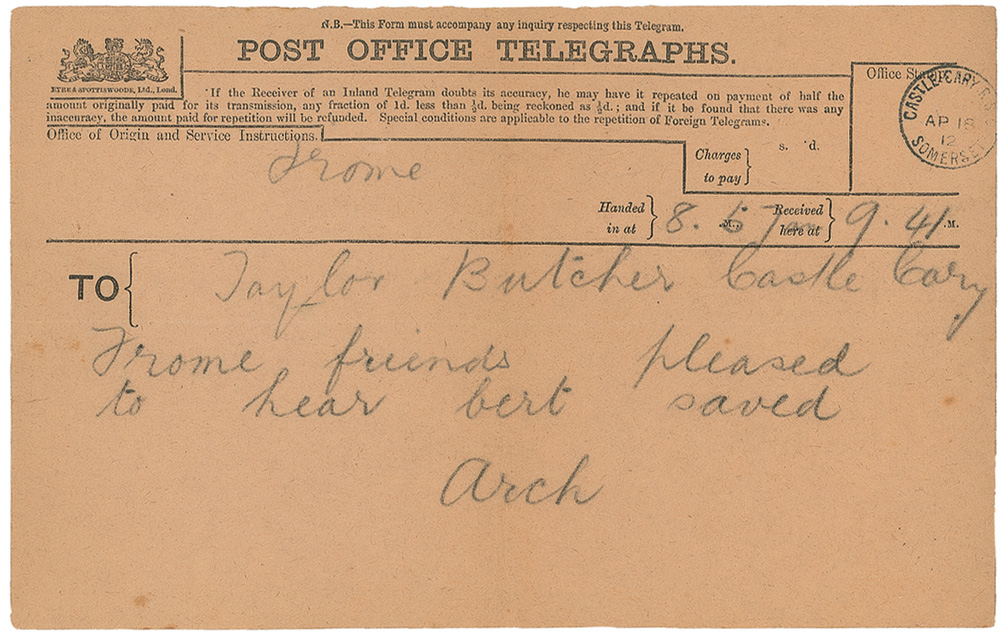 N.B.—This Form must accompany any inquiry respecting this Telegram.
POST OFFICE TELEGRAPHS.
EYRE & SPOTTISWOODE, Ltd., Lond.
If the Receiver of an Inland Telegram doubts its accuracy, he may have it repeated on payment of half the
amount originally paid for its transmission, any fraction of 1d. less than ½d. being reckoned as ½d.; and if it be found that there was any
inaccuracy, the amount paid for repetition will be refunded. Special conditions are applicable to the repetition of Foreign Telegrams.
Office of Origin and Service Instructions.
Office Stamp
CASTLE CARY
AP 18
12
SOMERSET
Frome
Charges
to pay
s. d.
Handed
in at
8.57
M.,
Received
here at
9.41
M.
TO
Taylor Butcher Castle Cary
Frome friends pleased
to hear bert saved
Arch